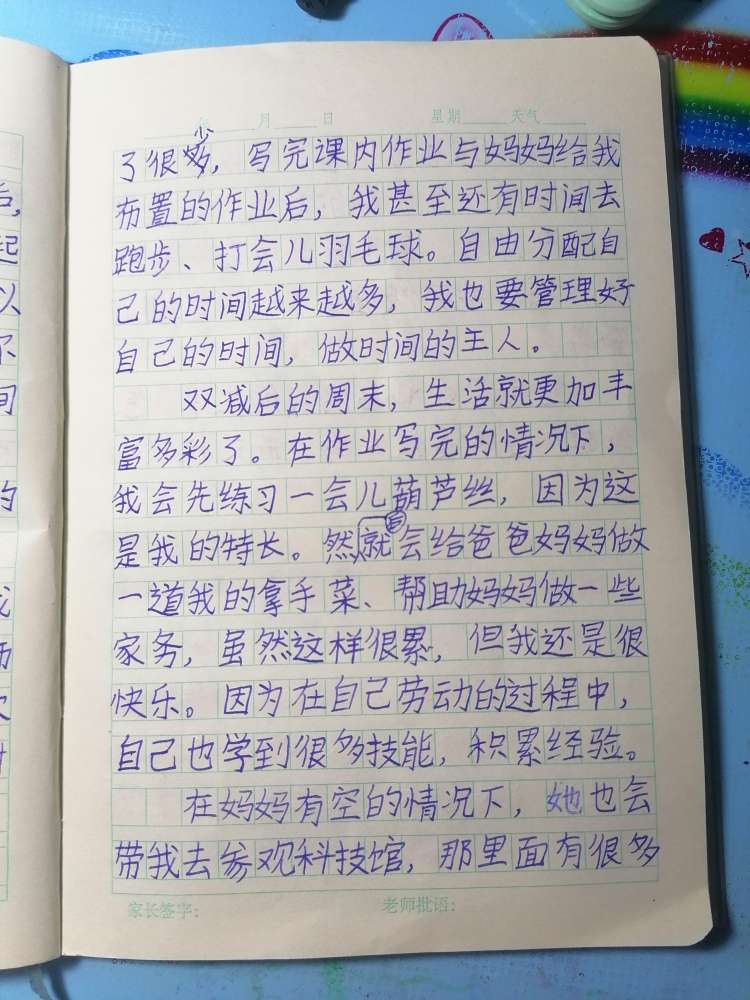 后，
起
以
间
的
月 日 星期 天气
了很少，写完课内作业与妈妈给我
布置的作业后，我甚至还有时间去
跑步、打会儿羽毛球。自由分配自
己的时间越来越多，我也要管理好
自己的时间，做时间的主人。
双减后的周末，生活就更加丰
富多彩了。在作业写完的情况下，
我会先练习一会儿葫芦丝，因为这
是我的特长。然就会给爸爸妈妈做
一道我的拿手菜、帮助妈妈做一些
家务，虽然这样很累，但我还是很
快乐。因为在自己劳动的过程中，
自己也学到很多技能，积累经验。
在妈妈有空的情况下，她也会
带我去参观科技馆，那里面有很多
家长签字：
老师批语：